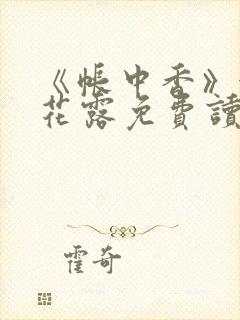 《帳中香》
花露免費讀
霍奇